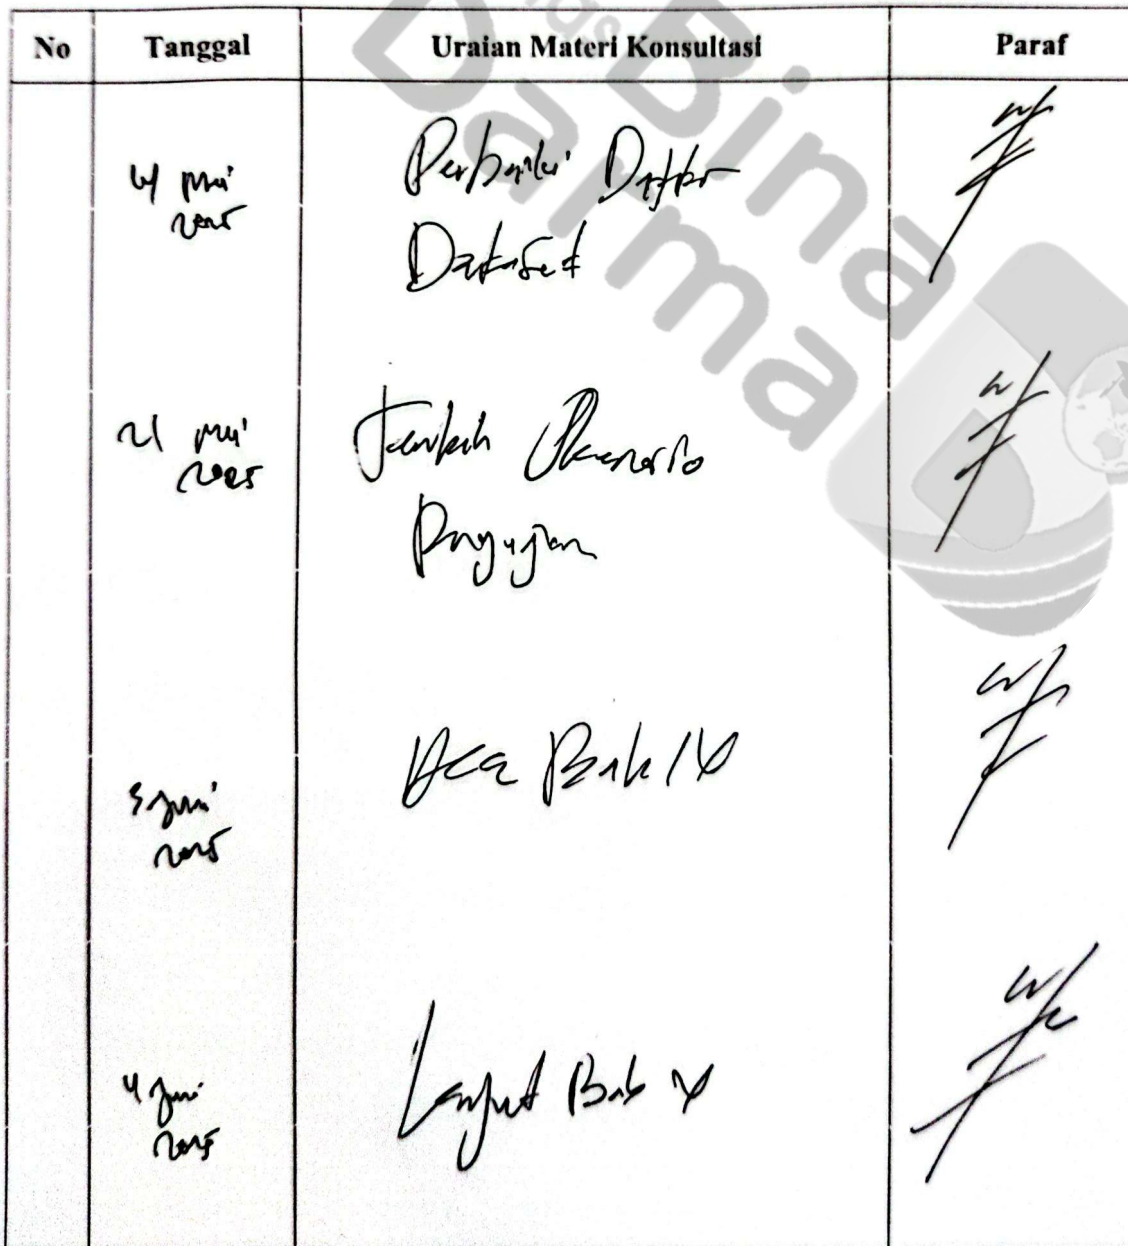 No Tanggal Uraian Materi Konsultasi Paraf
Bina
Darma
Mei
2025
Perbaiki Daftar
Dataset
21 Mei
2025
Skenario
Pengujian
3 Juni
2025
Acc Bab IV
4 Juni
2025
Lanjut Bab